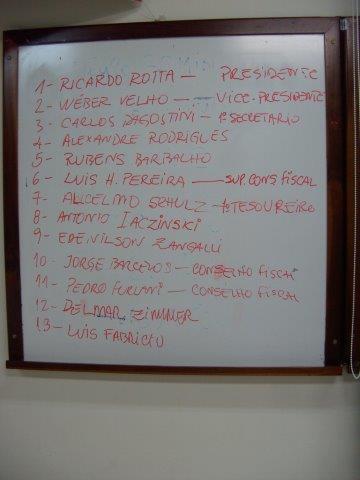 1- RICARDO ROTTA — PRESIDENTE
2- WÉBER VELHO — VICE-PRESIDENTE
3- CARLOS DAGOSTINI - 1º SECRETARIO
4- ALEXANDRE RODRIGUES
5- RUBENS BARBALHO
6- LUIS H. PEREIRA — SUP. CONS. FISCAL
7- ALICELMO SHULZ - 1º TESOUREIRO
8- ANTONIO IACZINSKI
9- EDENILSON ZANGALLI
10- JORGE BARCELOS — CONSELHO FISCAL
11- PEDRO FURLANI — CONSELHO FISCAL
12- DELMAR ZIMMER
13- LUIS FABRICIO